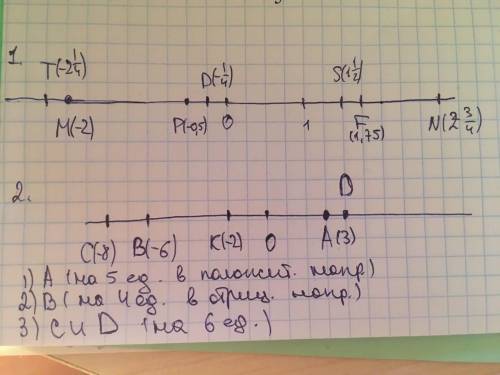 1.
T(-2 1/4) D(-1/4) S(1 1/2)
M(-2) P(-0,5) 0 1 F(1,75) N(2 3/4)
2.
D
C(-8) B(-6) K(-2) 0 A(3)
1) A (на 5 ед. в положит. напр.)
2) B (на 4 ед. в отриц. напр.)
3) C и D (на 6 ед.)